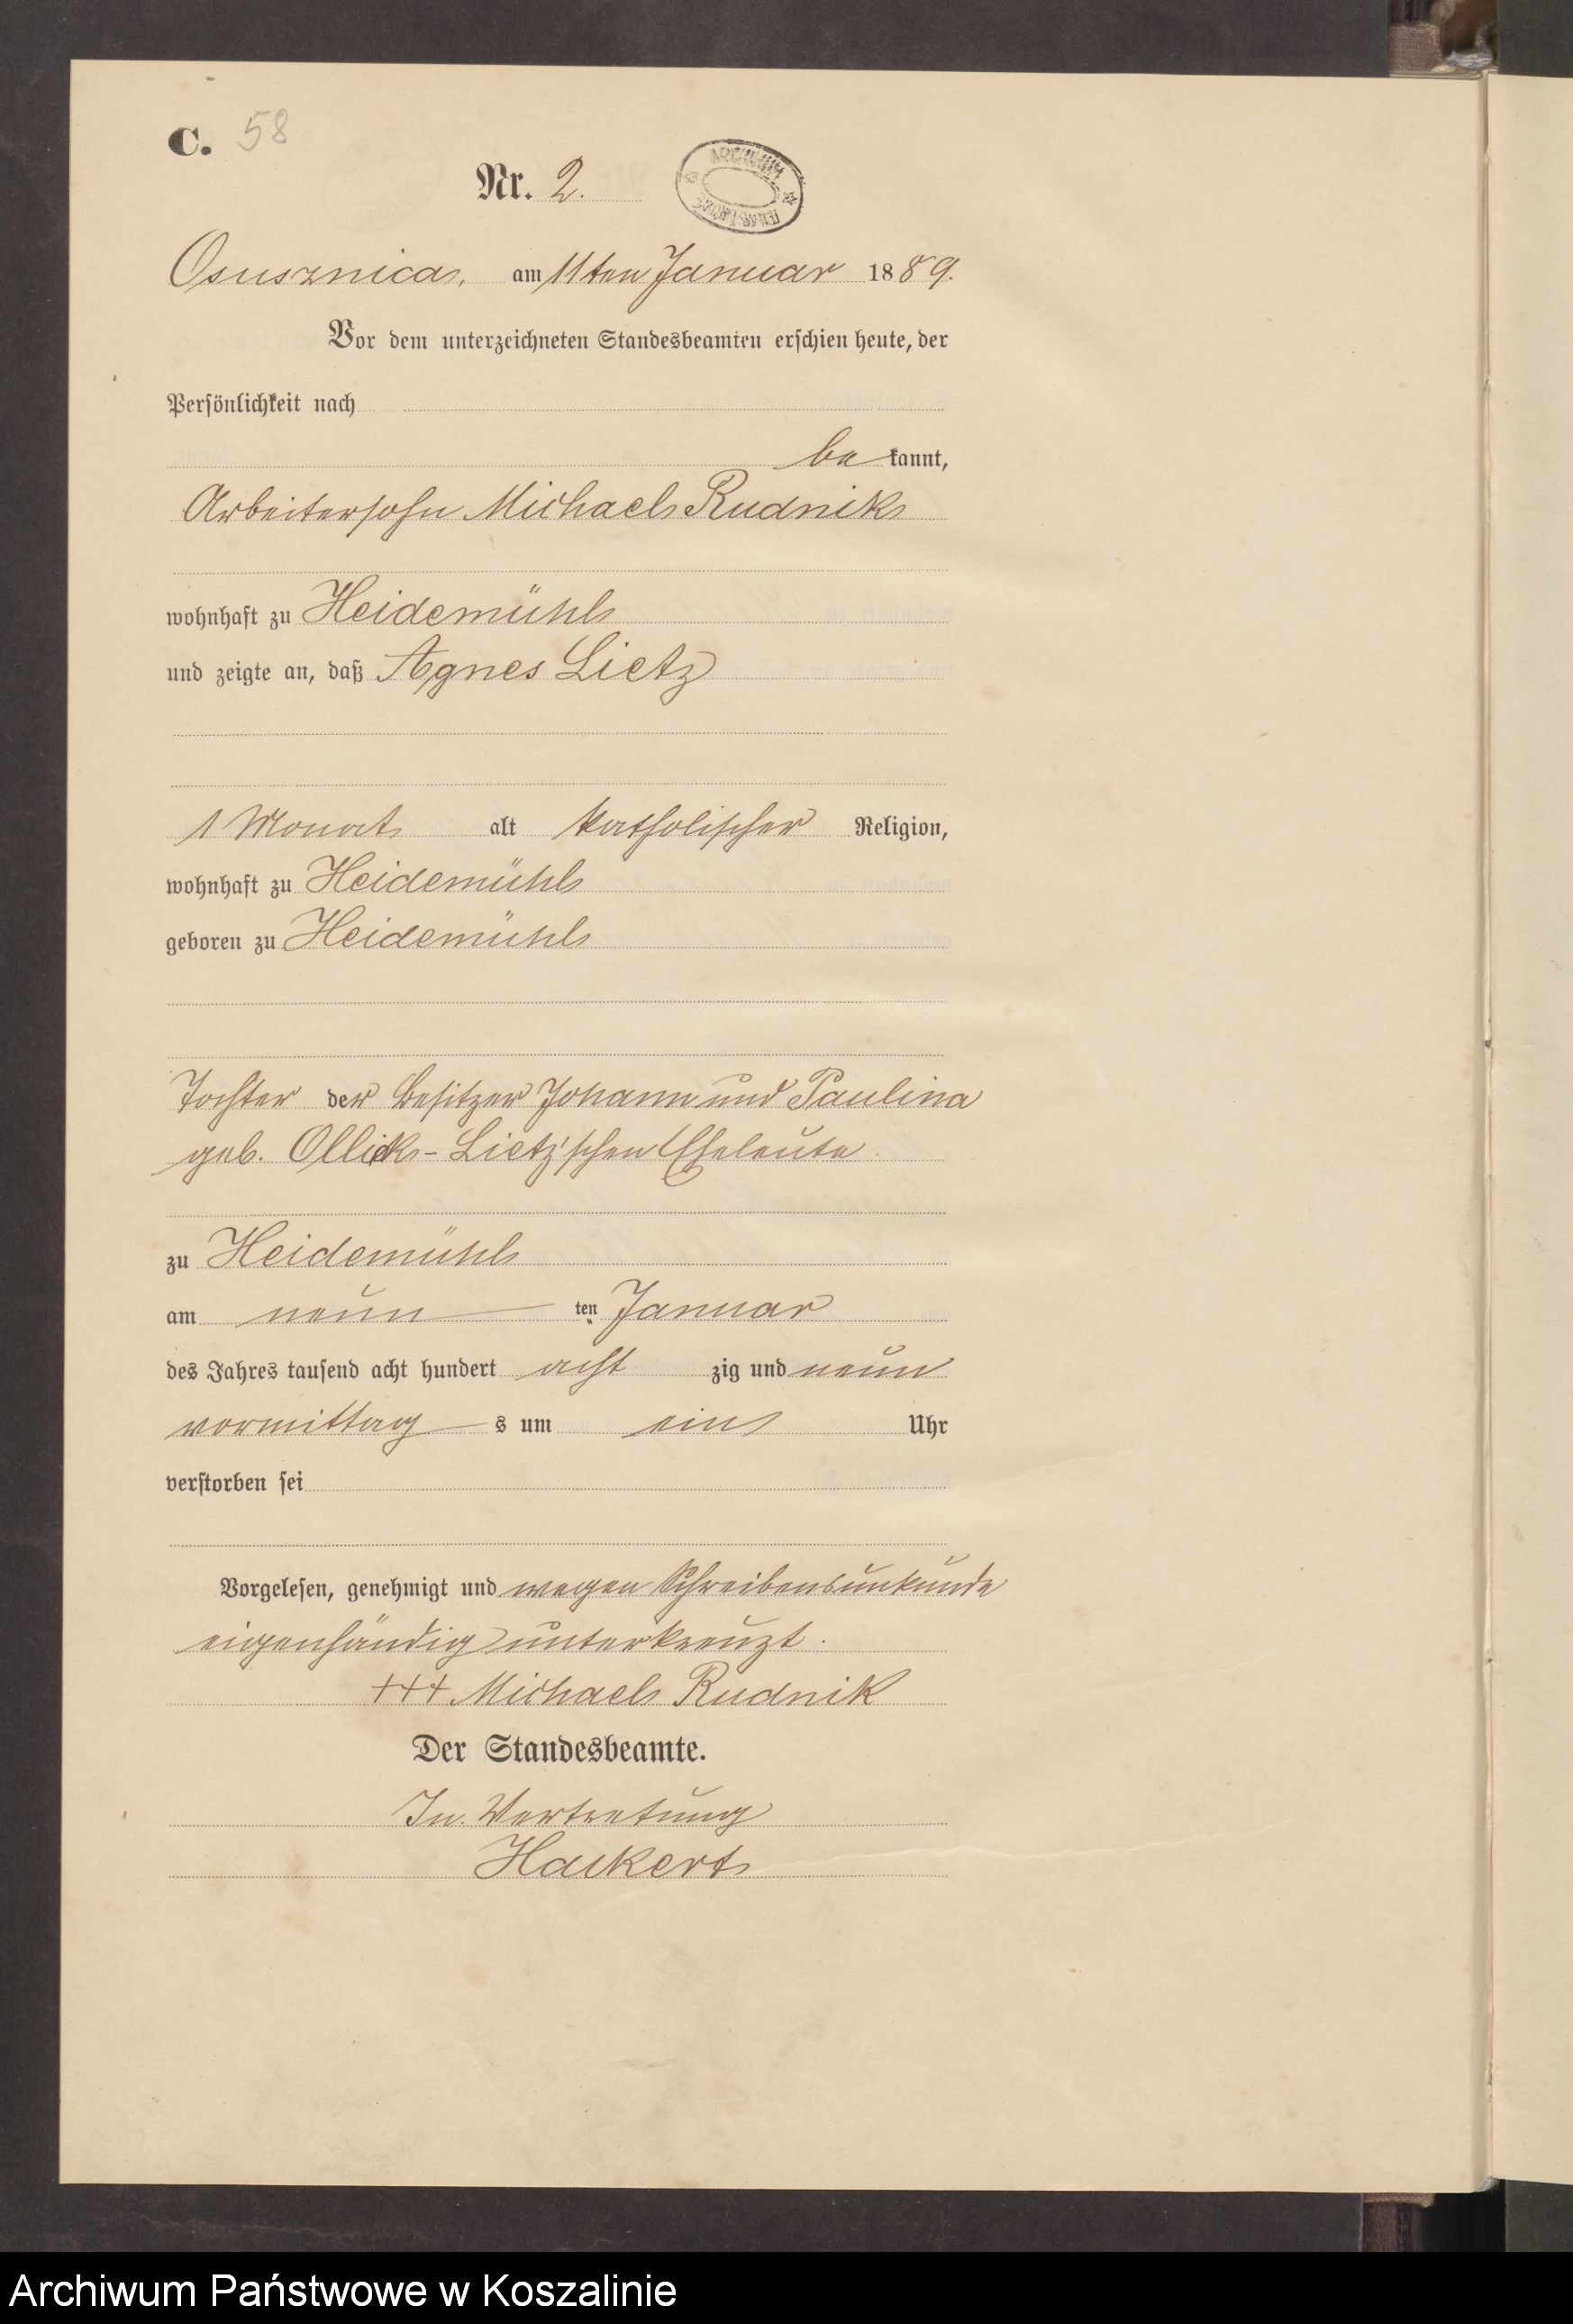 C. 58
Nr. 2.
ARCHIWUM
Osusznica, am 11ten Januar 1889.
Vor dem unterzeichneten Standesbeamten erschien heute, der
Persönlichkeit nach
be kannt,
Arbeitersohn Michael Rudnik
wohnhaft zu Heidemühl
und zeigte an, daß Agnes Lietz
1 Monat alt katholischer Religion,
wohnhaft zu Heidemühl
geboren zu Heidemühl
Tochter der Besitzer Johann und Paulina
geb. Ollick-Lietz'schen Eheleute
zu Heidemühl
am neun ten Januar
des Jahres tausend acht hundert acht zig und neun
vormittag s um eins Uhr
verstorben sei
Vorgelesen, genehmigt und wegen Schreibensunkunde
eigenhändig unterkreuzt.
+++ Michael Rudnik
Der Standesbeamte.
In Vertretung
Hackert
Archiwum Państwowe w Koszalinie